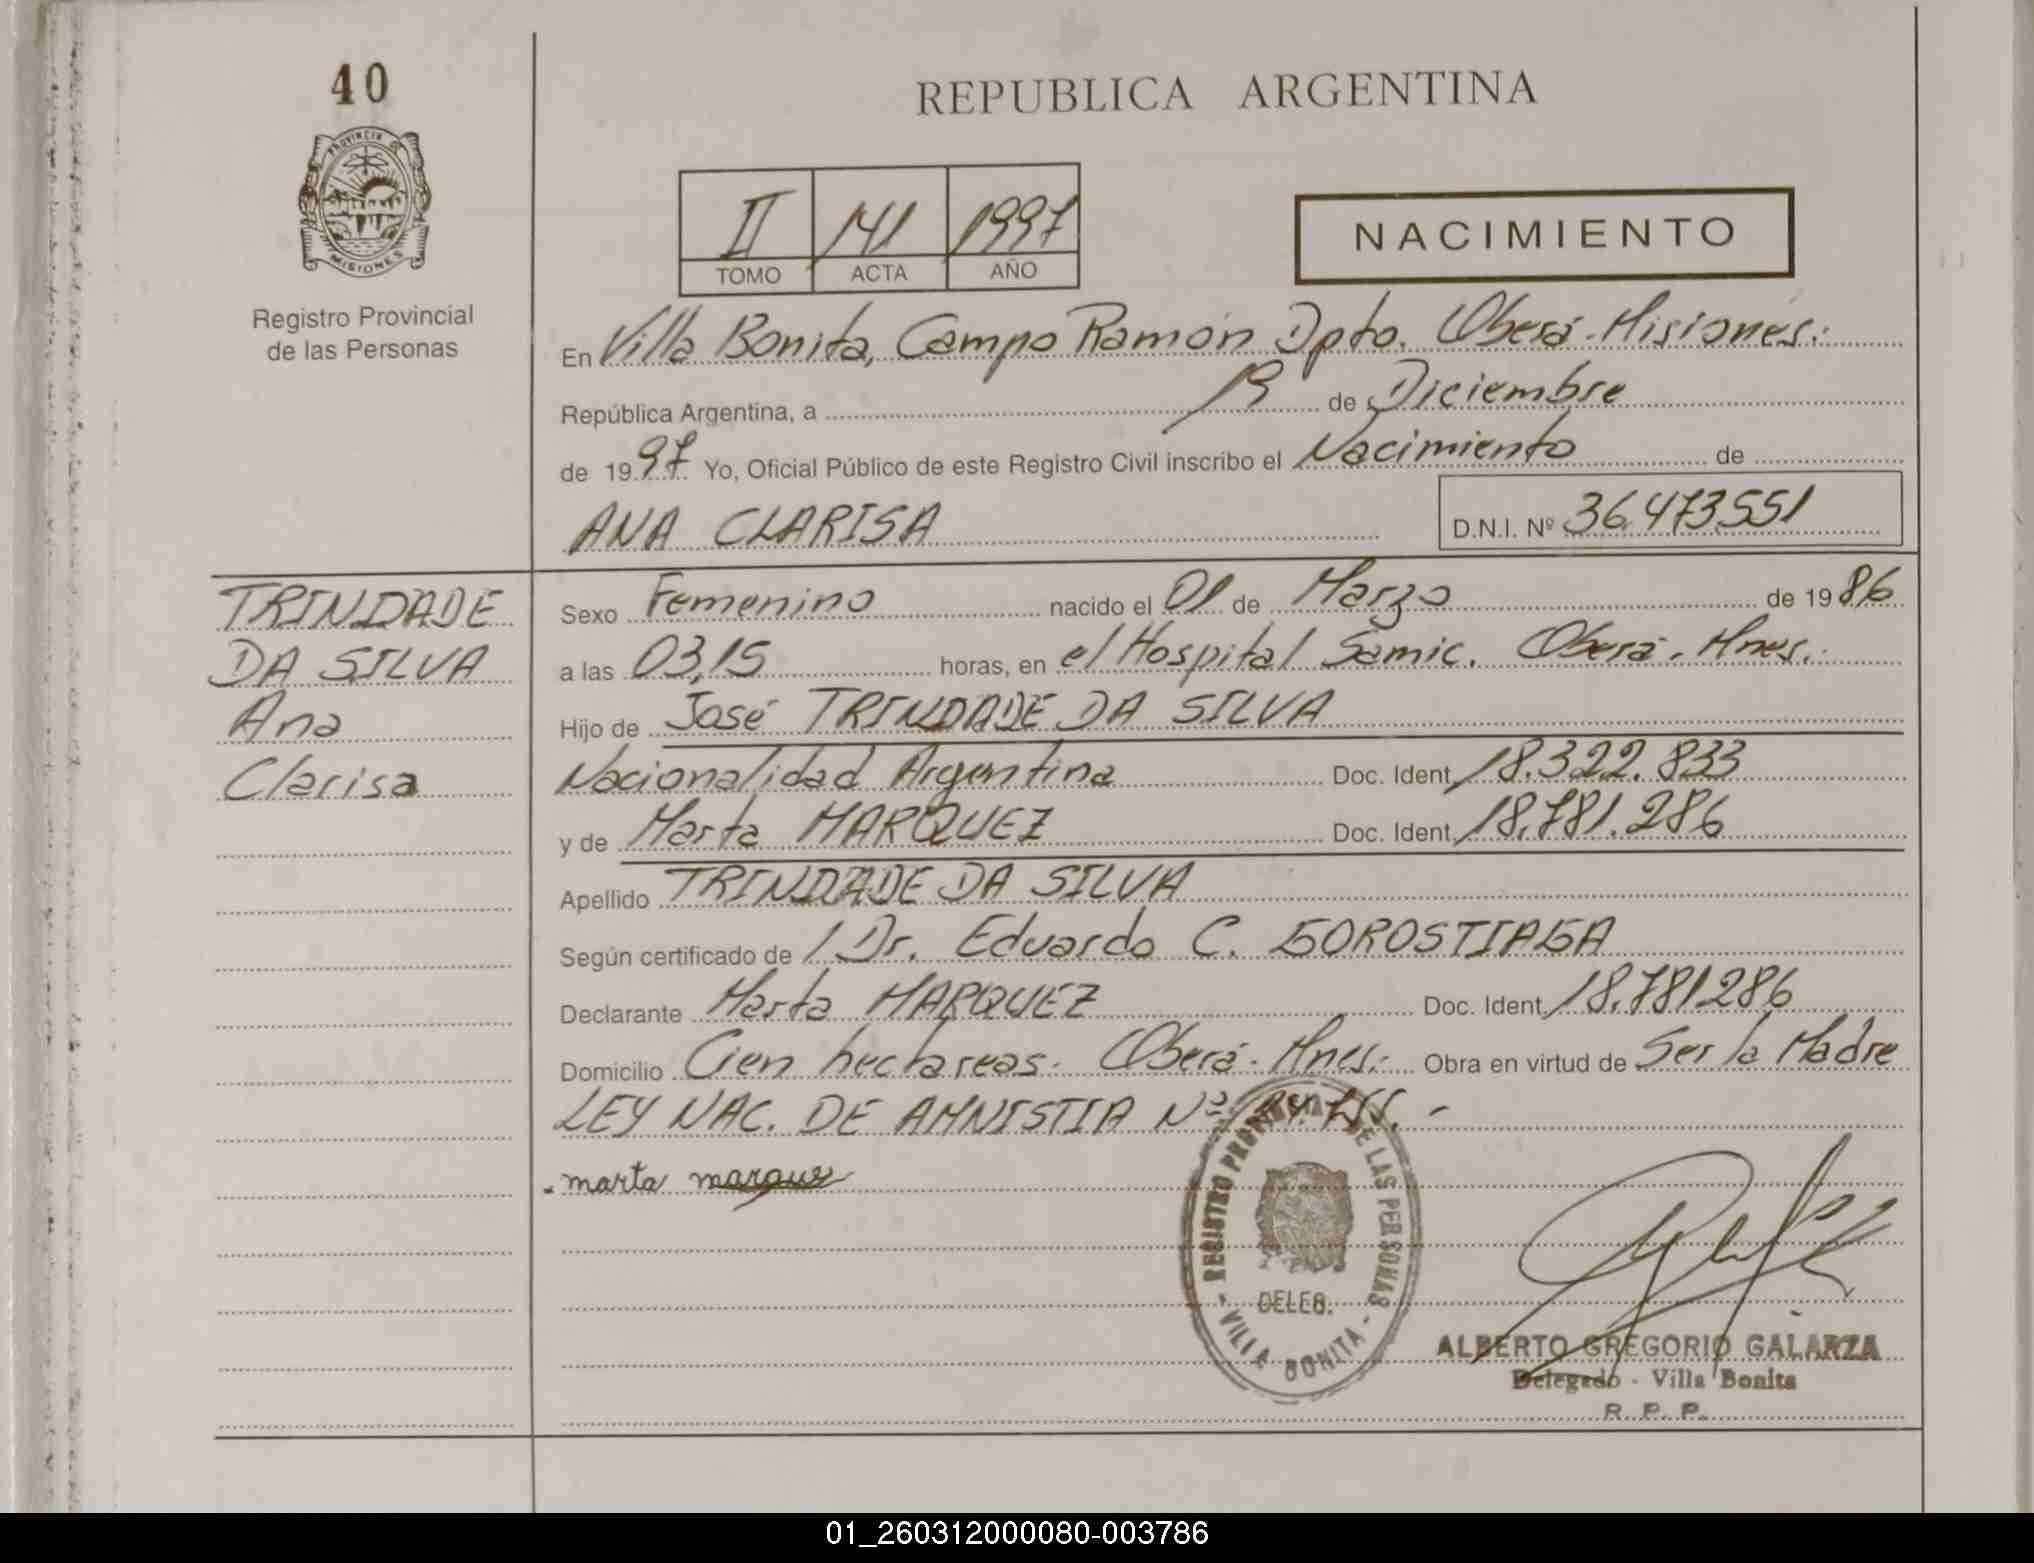 40
REPUBLICA ARGENTINA
PROVINCIA DE
MISIONES
Registro Provincial
de las Personas
II 141 1997
TOMO ACTA AÑO
NACIMIENTO
En Villa Bonita, Campo Ramón Dpto. Oberá-Misiones.
República Argentina, a 19 de Diciembre
de 1997 Yo, Oficial Público de este Registro Civil inscribo el Nacimiento de
ANA CLARISA D.N.I. Nº 36.473551
TRINDADE
DA SILVA
Ana
Clarisa
Sexo Femenino nacido el 01 de Marzo de 1986
a las 03,15 horas, en el Hospital Samic. Oberá. Mnes.
Hijo de José TRINDADE DA SILVA
Nacionalidad Argentina Doc. Ident. 18.322.833
y de Marta MARQUEZ Doc. Ident. 18.781.286
Apellido TRINDADE DA SILVA
Según certificado de / Dr. Eduardo C. GOROSTIAGA
Declarante Marta MARQUEZ Doc. Ident. 18.781286
Domicilio Cien hectareas. Oberá-Mnes. Obra en virtud de Ser la Madre
LEY NAC. DE AMNISTIA Nº 24.755.-
marta marquez
REGISTRO PROVINCIAL DE LAS PERSONAS
DELEG.
- VILLA BONITA -
ALBERTO GREGORIO GALARZA
Delegado - Villa Bonita
R. P. P.
01_260312000080-003786